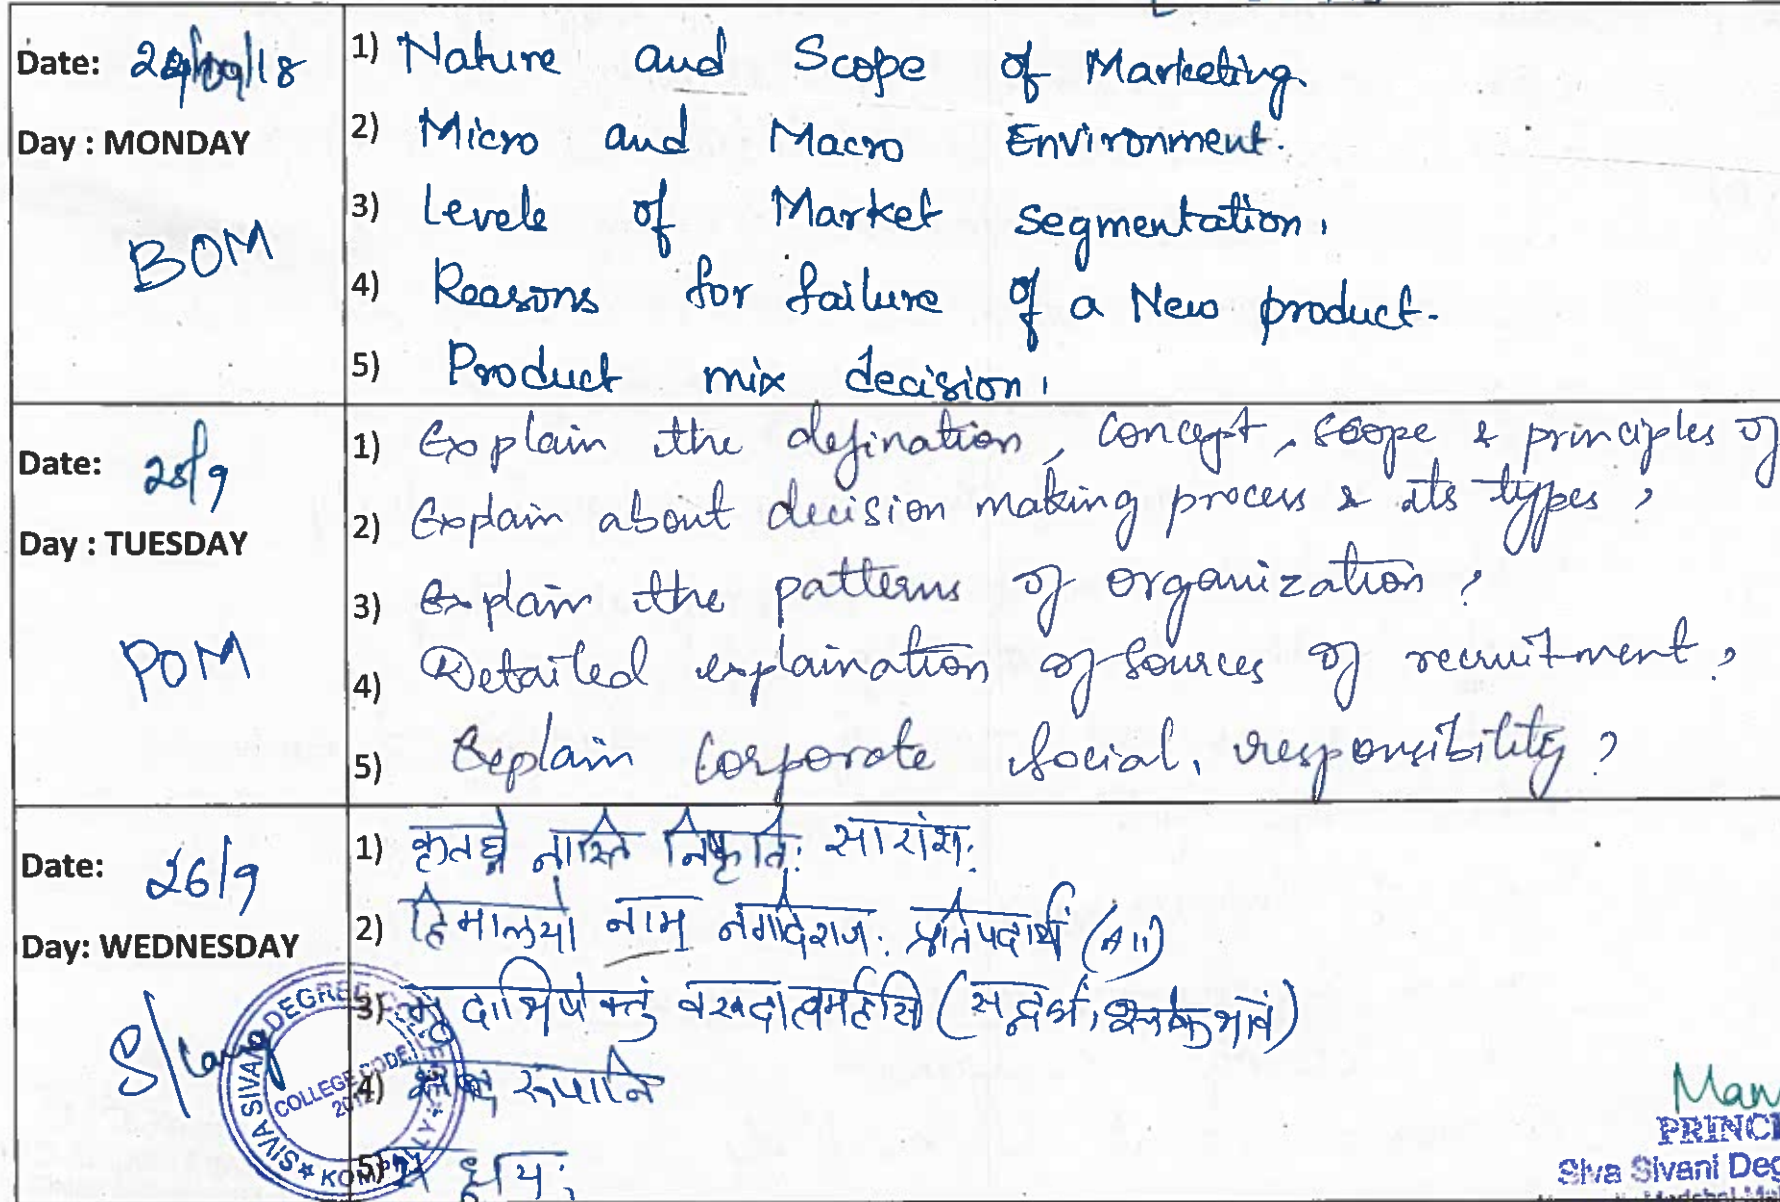 Date: 24/09/18
Day : MONDAY
BOM
1) Nature and Scope of Marketing.
2) Micro and Macro Environment.
3) Levels of Market segmentation.
4) Reasons for failure of a New product.
5) Product mix decision.
Date: 25/9
Day : TUESDAY
POM
1) Explain the defination, concept, scope & principles of
2) Explain about decision making process & its types?
3) Explain the patterns of organization?
4) Detailed explaination of sources of recruitment?
5) Explain Corporate social, responsibility?
Date: 26/9
Day: WEDNESDAY
S/Lang
1) कृतघ्ने नास्ति निष्कृतिः सारांशः
2) हिमालयो नाम नगाधिराजः प्रतिपदार्थ
3)
4) शब्द रूपानि
5)
SIVA SIVANI DEGREE COLLEGE
COLLEGE CODE
KOMPALLY
PRINCI
Siva Sivani Deg